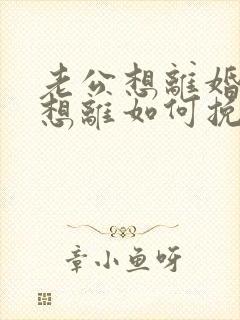 老公想離婚
想離如何挽
章小鱼呀